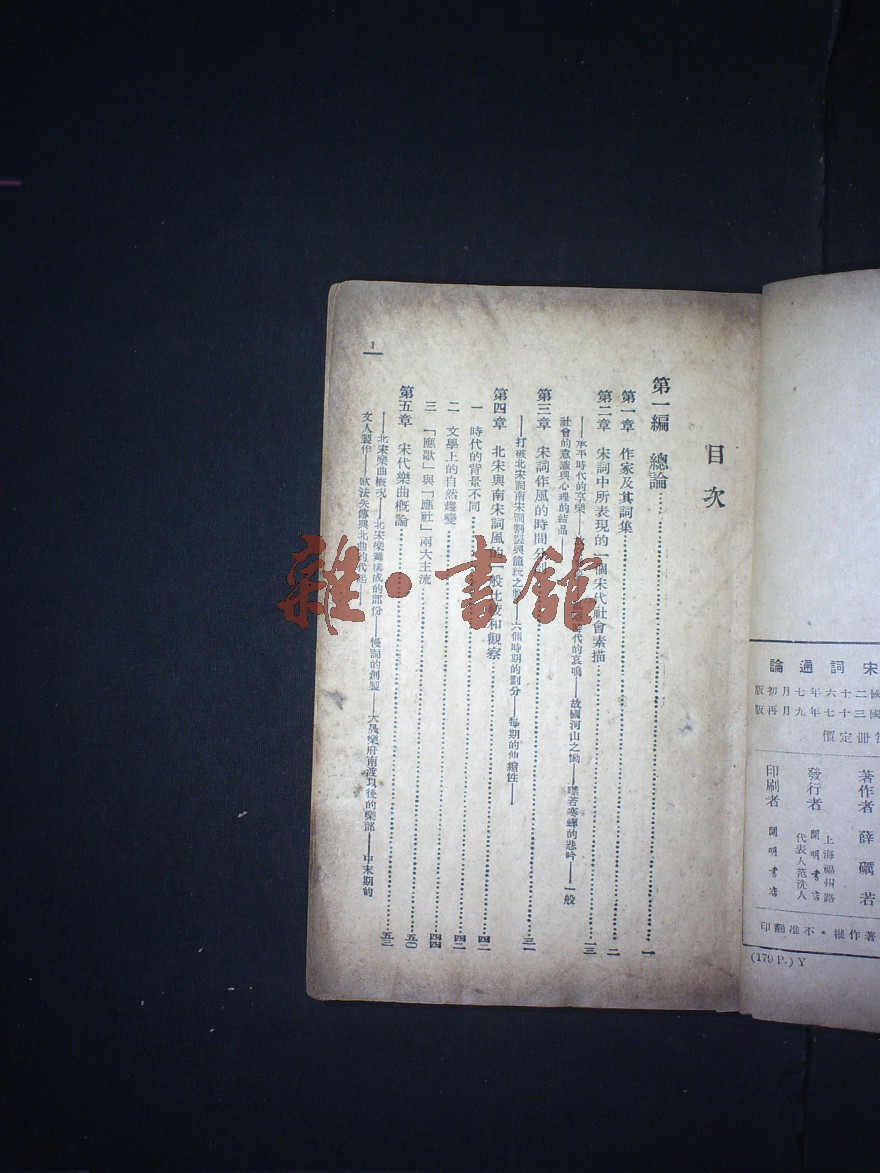 宋詞通論
國二十六年七月初版
國三十七年九月再版
冊定價
著作者 薛礪若
發行者
上海福州路
開明書店
代表人范洗人
印刷者 開明書店
著作權・不准翻印
(179 P.) Y
目次
第一編 總論……一
第一章 作家及其詞集……二
第二章 宋詞中所表現的一個宋代社會素描……一三
——承平時代的享樂——時代的哀鳴——故國河山之慟——噤若寒蟬的悲吟——一般
社會的意識與心理的結晶——
第三章 宋詞作風的時間分……三一
——打破北宋詞南宋詞割裂與籠統之——六個時期的劃分——每期的伸縮性——
第四章 北宋與南宋詞風的一般比較和觀察……四二
一 時代的背景不同……四二
二 文學上的自然趨變……四四
三 「應歌」與「應社」兩大主流……五〇
第五章 宋代樂曲概論……五三
——北宋樂曲概況——北宋樂舞構成的部份——慢詞的創製——大晟樂府南渡以後的樂部——中末期的
文人製作——賦法失傳與北曲的代起——
1
雜・書館